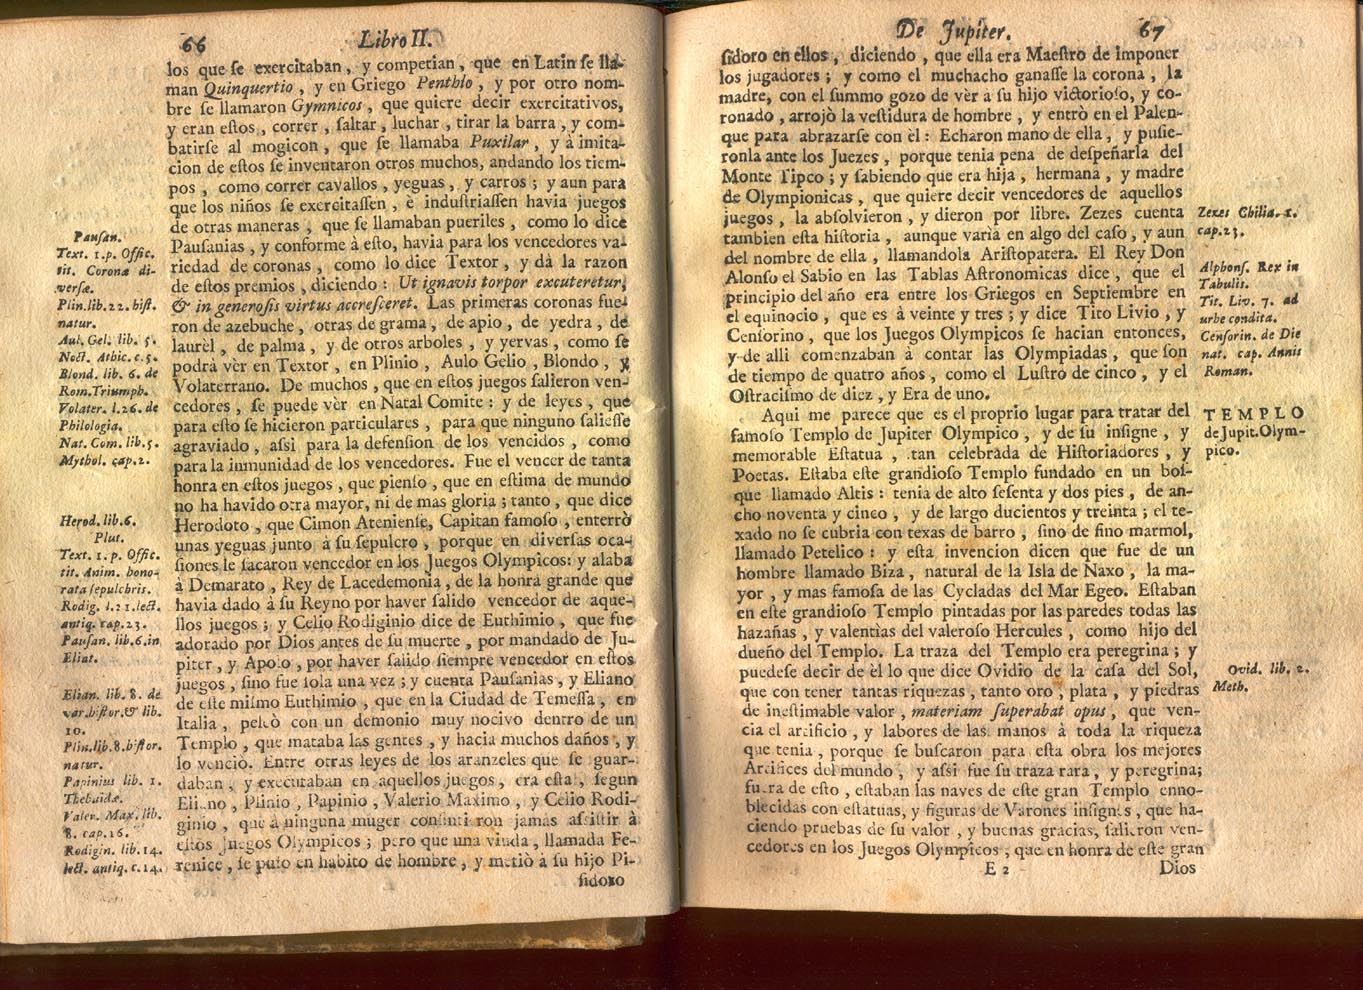 66 Libro II.
los que se exercitaban, y competian, que en Latin se lla-
man Quinquertio, y en Griego Penthlo, y por otro nom-
bre se llamaron Gymnicos, que quiere decir exercitativos,
y eran estos, correr, saltar, luchar, tirar la barra, y com-
batirse al mogicon, que se llamaba Puxilar, y à imita-
cion de estos se inventaron otros muchos, andando los tiem-
pos, como correr cavallos, yeguas, y carros; y aun para
que los niños se exercitassen, è industriassen havia juegos
de otras maneras, que se llamaban pueriles, como lo dice
Pausanias, y conforme à esto, havia para los vencedores va-
riedad de coronas, como lo dice Textor, y dà la razon
de estos premios, diciendo: Ut ignavis torpor excuteretur,
& in generosis virtus accresceret. Las primeras coronas fue-
ron de azebuche, otras de grama, de apio, de yedra, de
laurèl, de palma, y de otros arboles, y yervas, como se
podrà vèr en Textor, en Plinio, Aulo Gelio, Blondo, y
Volaterrano. De muchos, que en estos juegos salieron ven-
cedores, se puede vèr en Natal Comite: y de leyes, que
para esto se hicieron particulares, para que ninguno saliesse
agraviado, assi para la defension de los vencidos, como
para la inmunidad de los vencedores. Fue el vencer de tanta
honra en estos juegos, que pienso, que en estima de mundo
no ha havido otra mayor, ni de mas gloria; tanto, que dice
Herodoto, que Cimon Ateniense, Capitan famoso, enterrò
unas yeguas junto à su sepulcro, porque en diversas oca-
siones le sacaron vencedor en los Juegos Olympicos: y alaba
à Demarato, Rey de Lacedemonia, de la honra grande que
havia dado à su Reyno por haver salido vencedor de aque-
llos juegos; y Celio Rodiginio dice de Euthimio, que fue
adorado por Dios antes de su muerte, por mandado de Ju-
piter, y Apolo, por haver salido siempre vencedor en estos
juegos, sino fue sola una vez; y cuenta Pausanias, y Eliano
de este mismo Euthimio, que en la Ciudad de Temessa, en
Italia, peleò con un demonio muy nocivo dentro de un
Templo, que mataba las gentes, y hacia muchos daños, y
lo venciò. Entre otras leyes de los aranzeles que se guar-
daban, y executaban en aquellos juegos, era esta, segun
Eliano, Plinio, Papinio, Valerio Maximo, y Celio Rodi-
ginio, que à ninguna muger consintieron jamàs assistir à
estos Juegos Olympicos; pero que una viuda, llamada Fe-
renice, se puso en habito de hombre, y metiò à su hijo Pi-
sidoro
Pausan.
Text. 1.p. Offic.
tit. Coronæ di-
versæ.
Plin.lib.22. hist.
natur.
Aul. Gel. lib. 5.
Noct. Athic. c.5.
Blond. lib. 6. de
Rom.Triumph.
Volater. l.26. de
Philologia.
Nat. Com. lib.5.
Mythol. cap.2.
Herod. lib.6.
Plut.
Text. 1.p. Offic.
tit. Anim. hono-
rata sepulchris.
Rodig. l.21.lect.
antiq. cap.23.
Pausan. lib.6.in
Eliat.
Elian. lib. 8. de
var.histor.& lib.
10.
Plin.lib.8.histor.
natur.
Papinius lib. 1.
Thebaidæ.
Valer. Max. lib.
8. cap.16.
Rodigin. lib.14.
lect. antiq. c.14.
De Jupiter. 67
sidoro en ellos, diciendo, que ella era Maestro de imponer
los jugadores; y como el muchacho ganasse la corona, la
madre, con el summo gozo de vèr à su hijo victorioso, y co-
ronado, arrojò la vestidura de hombre, y entrò en el Palen-
que para abrazarse con èl: Echaron mano de ella, y pusie-
ronla ante los Juezes, porque tenia pena de despeñarla del
Monte Tipeo; y sabiendo que era hija, hermana, y madre
de Olympionicas, que quiere decir vencedores de aquellos
juegos, la absolvieron, y dieron por libre. Zezes cuenta
tambien esta historia, aunque varìa en algo del caso, y aun
del nombre de ella, llamandola Aristopatera. El Rey Don
Alonso el Sabio en las Tablas Astronomicas dice, que el
principio del año era entre los Griegos en Septiembre en
el equinocio, que es à veinte y tres; y dice Tito Livio, y
Censorino, que los Juegos Olympicos se hacian entonces,
y de alli comenzaban à contar las Olympiadas, que son
de tiempo de quatro años, como el Lustro de cinco, y el
Ostracismo de diez, y Era de uno.
Aqui me parece que es el proprio lugar para tratar del
famoso Templo de Jupiter Olympico, y de su insigne, y
memorable Estatua, tan celebrada de Historiadores, y
Poetas. Estaba este grandioso Templo fundado en un bos-
que llamado Altis: tenia de alto sesenta y dos pies, de an-
cho noventa y cinco, y de largo ducientos y treinta; el te-
xado no se cubria con texas de barro, sino de fino marmol,
llamado Petelico: y esta invencion dicen que fue de un
hombre llamado Biza, natural de la Isla de Naxo, la ma-
yor, y mas famosa de las Cycladas del Mar Egeo. Estaban
en este grandioso Templo pintadas por las paredes todas las
hazañas, y valentias del valeroso Hercules, como hijo del
dueño del Templo. La traza del Templo era peregrina; y
puedese decir de èl lo que dice Ovidio de la casa del Sol,
que con tener tantas riquezas, tanto oro, plata, y piedras
de inestimable valor, materiam superabat opus, que ven-
cia el artificio, y labores de las manos à toda la riqueza
que tenia, porque se buscaron para esta obra los mejores
Artifices del mundo, y assi fue su traza rara, y peregrina;
fuera de esto, estaban las naves de este gran Templo enno-
blecidas con estatuas, y figuras de Varones insignes, que ha-
ciendo pruebas de su valor, y buenas gracias, salieron ven-
cedores en los Juegos Olympicos, que en honra de este gran
E 2 Dios
Zezes Chilia. 1.
cap.23.
Alphons. Rex in
Tabulis.
Tit. Liv. 7. ad
urbe condita.
Censorin. de Die
nat. cap. Annis
Roman.
TEMPLO
de Jupit.Olym-
pico.
Ovid. lib. 2.
Meth.